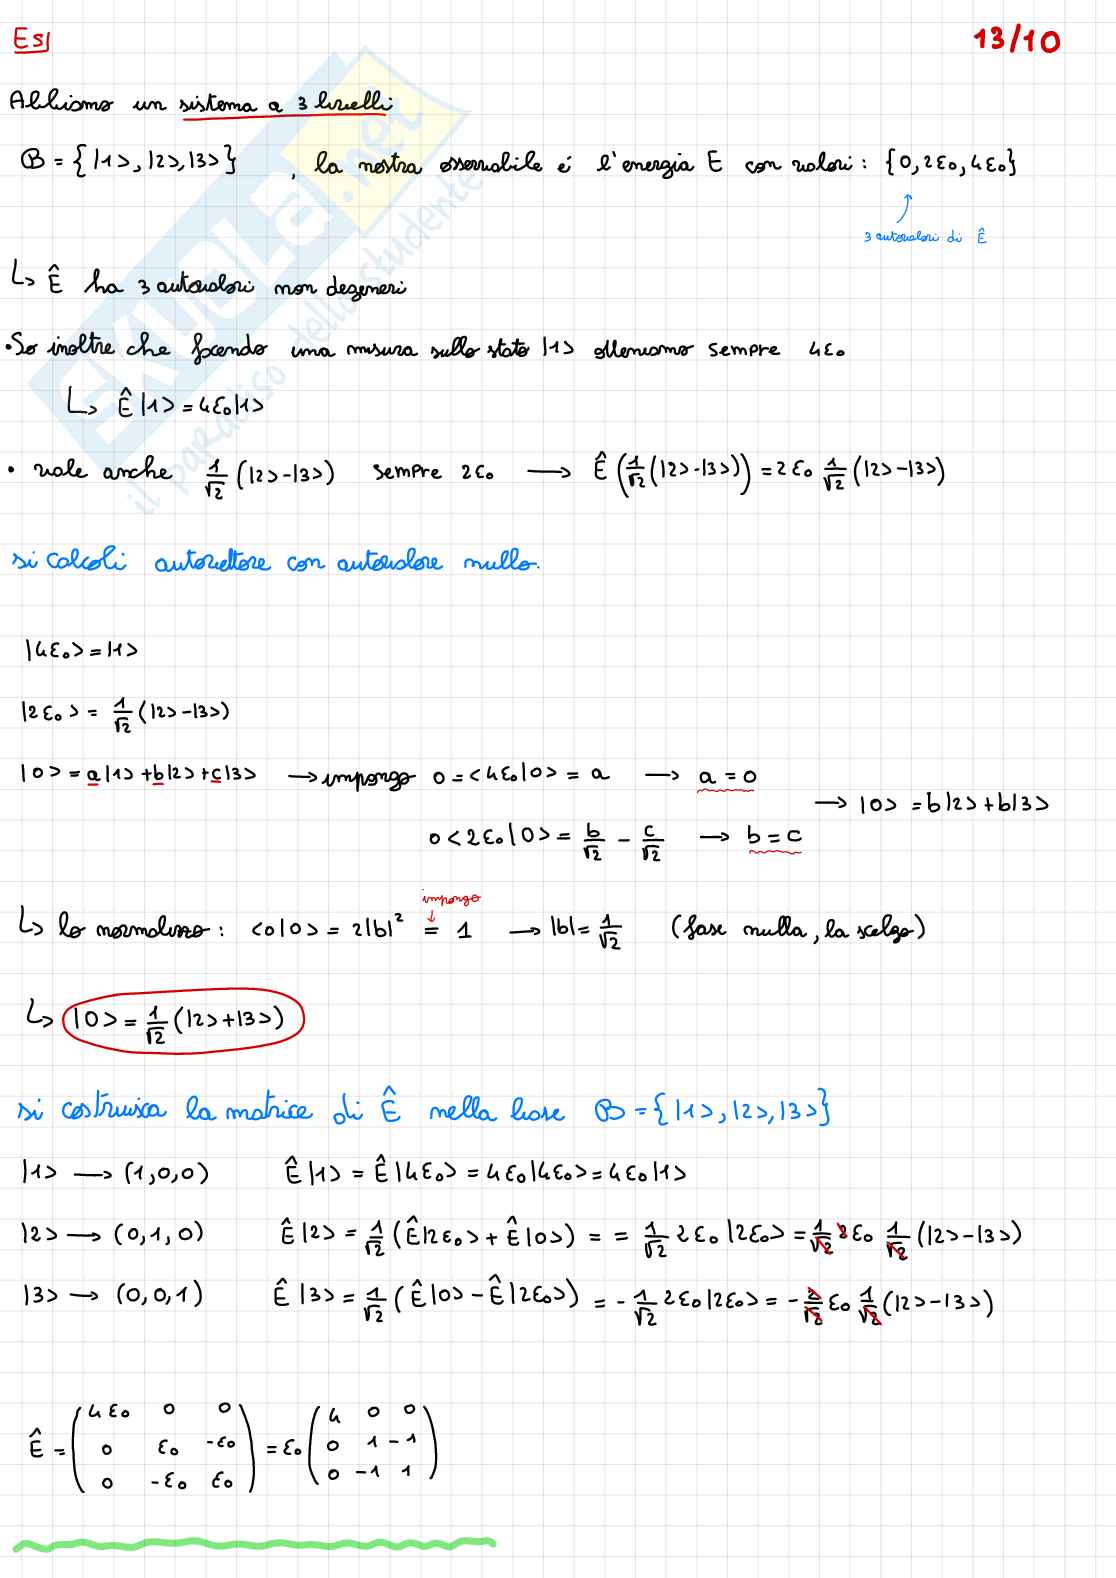 Es
13/10
Abbiamo un sistema a 3 livelli
B = {|1>, |2>, |3>} , la nostra osservabile é l'energia E con valori: {0, 2ε₀, 4ε₀}
3 autovalori di Ê
↳ Ê ha 3 autovalori non degeneri
•So inoltre che facendo una misura sullo stato |1> otteniamo sempre 4ε₀
↳ Ê|1> = 4ε₀|1>
• vale anche 1/√2 (|2>-|3>) sempre 2ε₀ → Ê(1/√2 (|2>-|3>)) = 2ε₀ 1/√2 (|2>-|3>)
si calcoli autovettore con autovalore nullo.
|4ε₀> = |1>
|2ε₀> = 1/√2 (|2>-|3>)
|0> = a|1> + b|2> + c|3> → impongo 0 = <4ε₀|0> = a → a = 0
→ |0> = b|2> + b|3>
0 < 2ε₀|0> = b/√2 - c/√2 → b = c
impongo
↓
↳ lo normalizzo: <0|0> = 2|b|² = 1 → |b| = 1/√2 (fase nulla, la scelgo)
↳ |0> = 1/√2 (|2>+|3>)
si costruisca la matrice di Ê nella base B = {|1>, |2>, |3>}
|1> → (1,0,0) Ê|1> = Ê|4ε₀> = 4ε₀|4ε₀> = 4ε₀|1>
|2> → (0,1,0) Ê|2> = 1/√2 (Ê|2ε₀> + Ê|0>) = = 1/√2 2ε₀|2ε₀> = 1/√2 2ε₀ 1/√2 (|2>-|3>)
|3> → (0,0,1) Ê|3> = 1/√2 (Ê|0> - Ê|2ε₀>) = - 1/√2 2ε₀|2ε₀> = - 2/√2 ε₀ 1/√2 (|2>-|3>)
4ε₀ 0 0 4 0 0
Ê = 0 ε₀ -ε₀ = ε₀ 0 1 -1
0 -ε₀ ε₀ 0 -1 1
SKUOLA.net
il paradiso dello studente